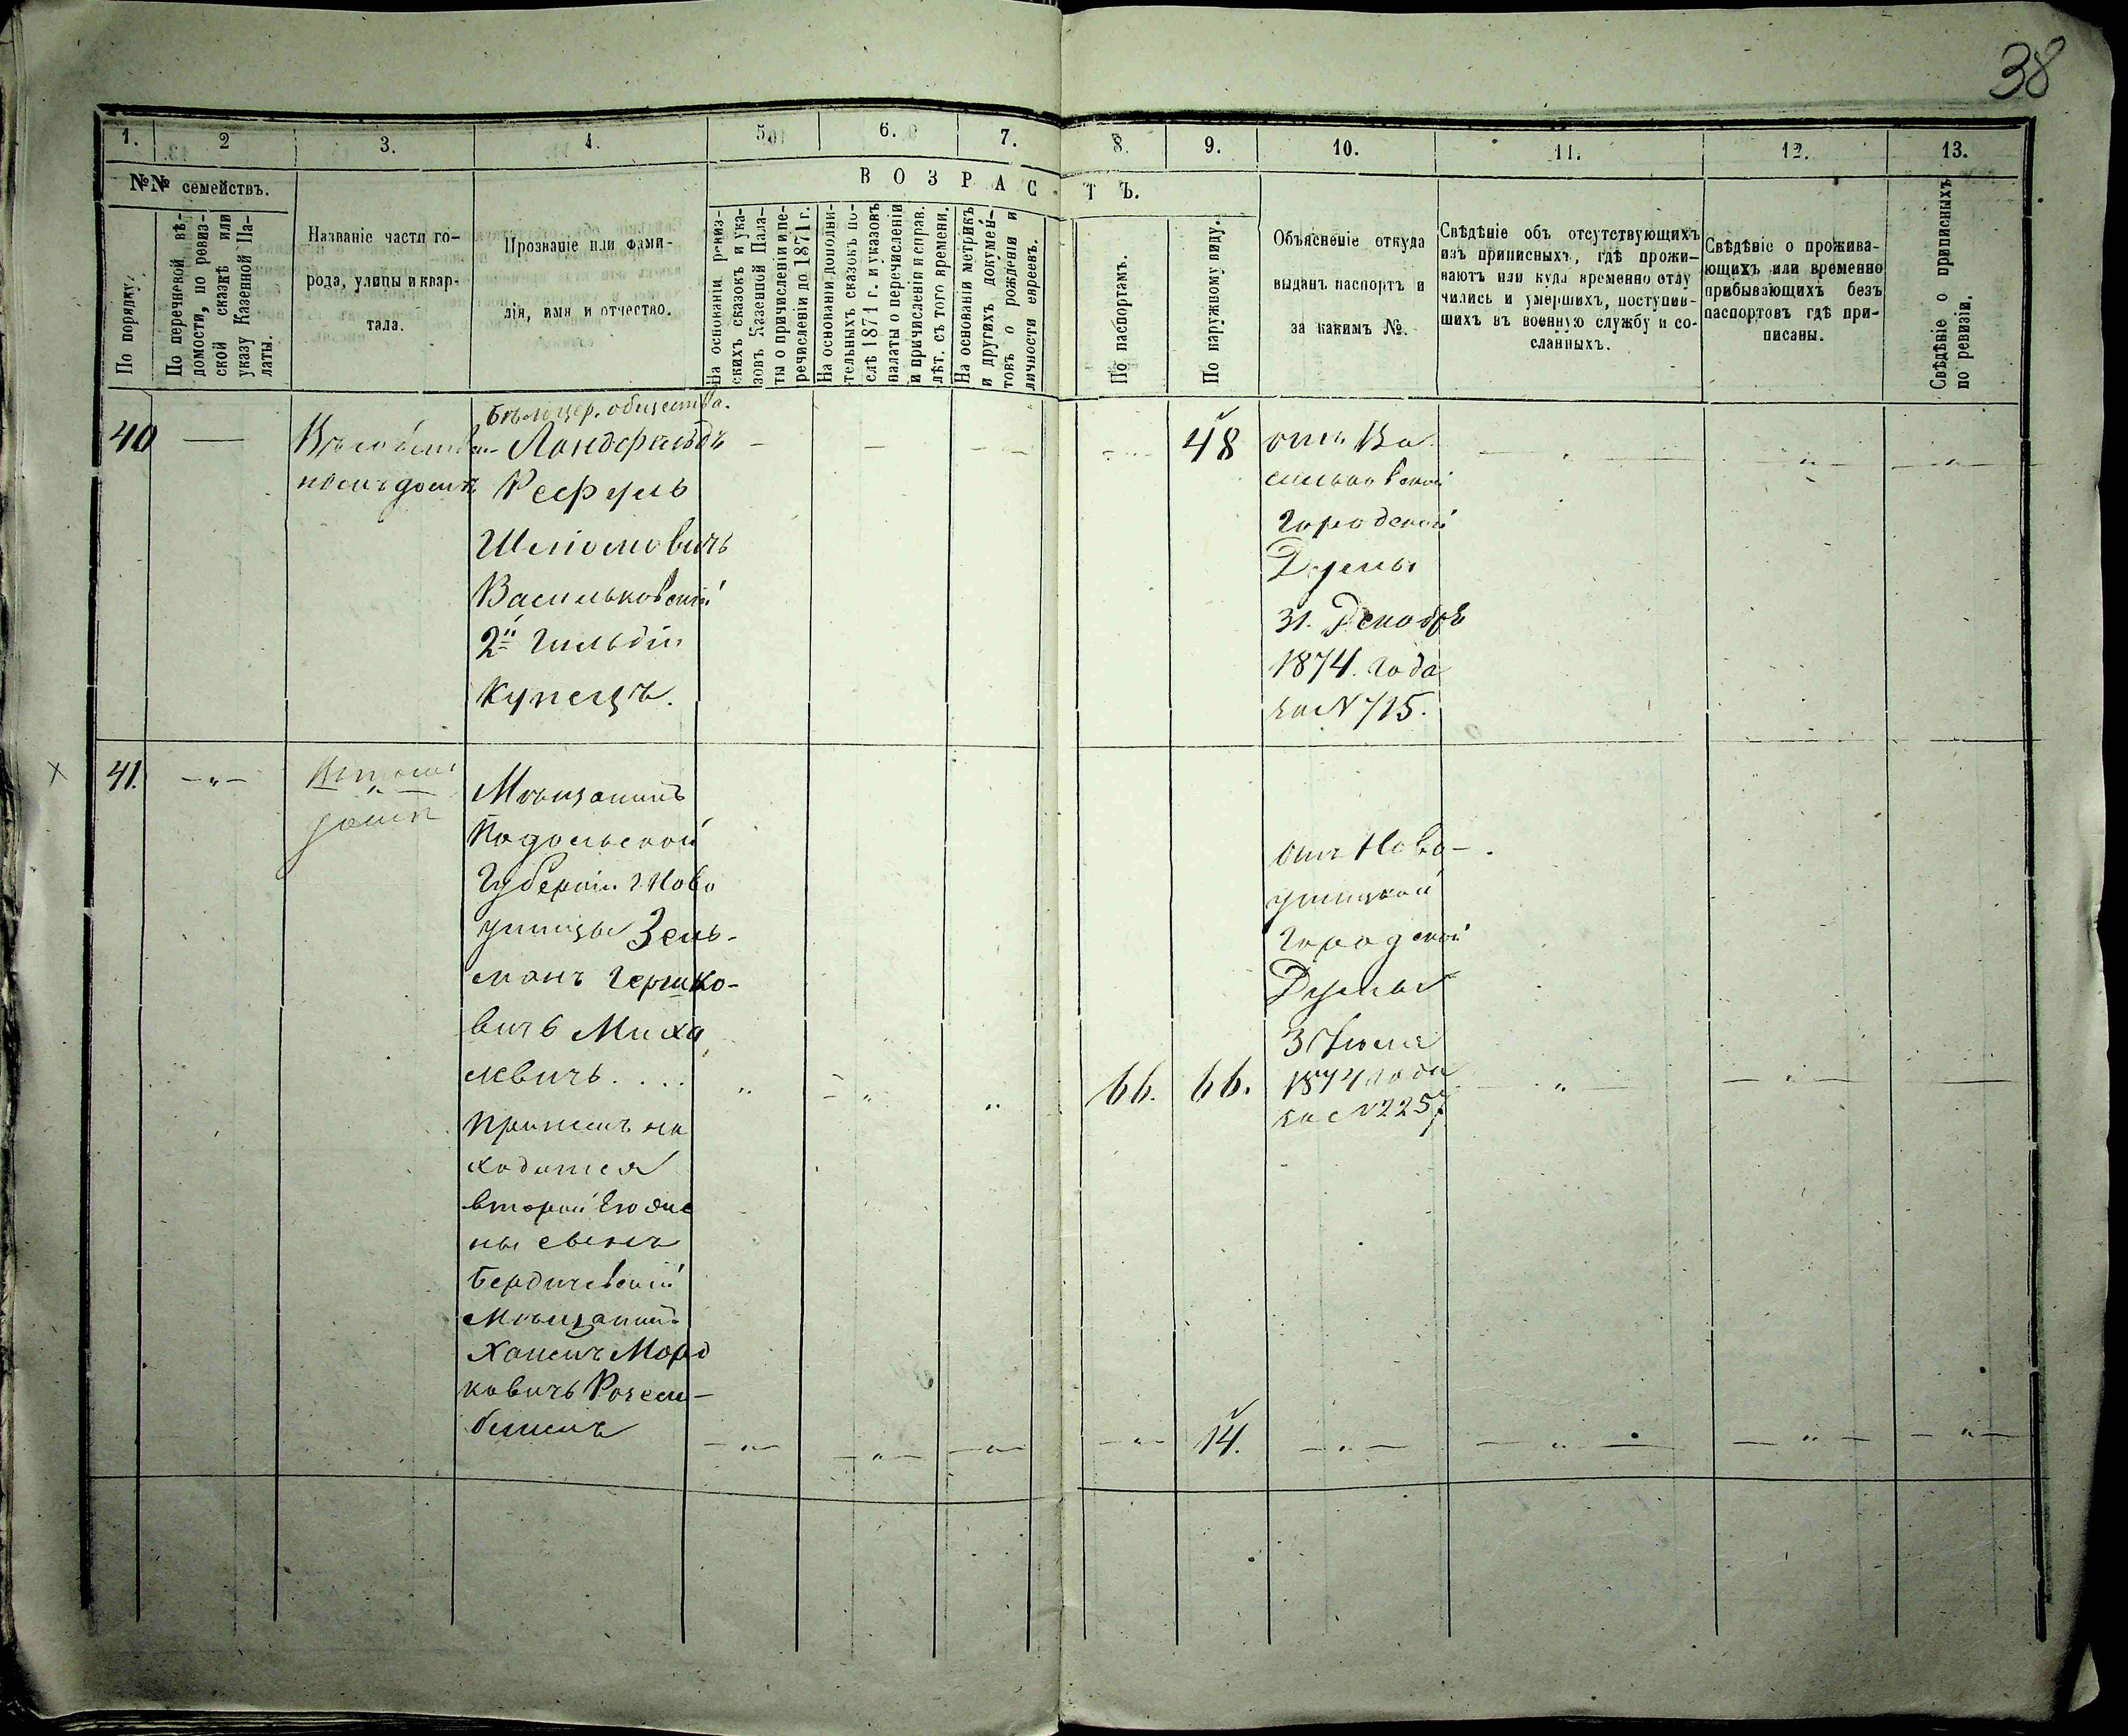 38
1. 2 3. 4. 5. 6. 7. 8. 9. 10. 11. 12. 13.
№№ семействъ.
В О З Р А С Т Ъ.
По порядку.
По перечневой вѣ-
домости, по ревиз-
ской сказкѣ или
указу Казенной Па-
латы.
Названіе части го-
рода, улицы и квар-
тала.
Прозваніе или фами-
лія, имя и отчество.
На основаніи ревиз-
скихъ сказокъ и ука-
зовъ Казенной Пала-
ты о причисленіи и пе-
речисленіи до 1871 г.
На основаніи дополни-
тельныхъ сказокъ по-
слѣ 1871 г. и указовъ
палаты о перечисленіи
и причисленіи и справ.
лѣт. съ того времени.
На основаніи метрикъ
и другихъ докумен-
товъ о рожденіи и
личности евреевъ.
По паспортамъ.
По наружному виду.
Объясненіе откуда
выданъ паспортъ и
за какимъ №.
Свѣдѣніе объ отсутствующихъ
изъ приписныхъ, гдѣ прожи-
ваютъ или куда временно отлу
чились и умершихъ, поступив-
шихъ въ военную службу и со-
сланныхъ.
Свѣдѣніе о прожива-
ющихъ или временно
прибывающихъ безъ
паспортовъ гдѣ при-
писаны.
Свѣдѣніе о приписныхъ
по ревизіи.
40
Въ собствен-
номъ домѣ
Бѣлоцер. общества.
Ландфельдъ
Рефуль
Шліомовичъ
Васильковскій
2й Гильдіи
Купецъ.
48
отъ Ва
сильковской
Городской
Думы
31. Декабря
1874. года
за № 715.
41.
домѣ
Мѣщанинъ
Подольской
Губерніи г. Ново
ушицы Зель-
манъ Гершко-
вичъ Миха
левичъ....
Принемъ на
ходится
второй его же
ны сынъ
Бердичевскій
Мѣщанинъ
Хаимъ Морд
ковичъ Розен-
блитъ
66. 66.
отъ Ново-
ушицкой
Городской
Думы
3 Іюля
1874 года
за № 2257.
14.